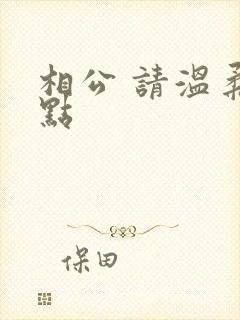 相公 請溫柔
點
保田